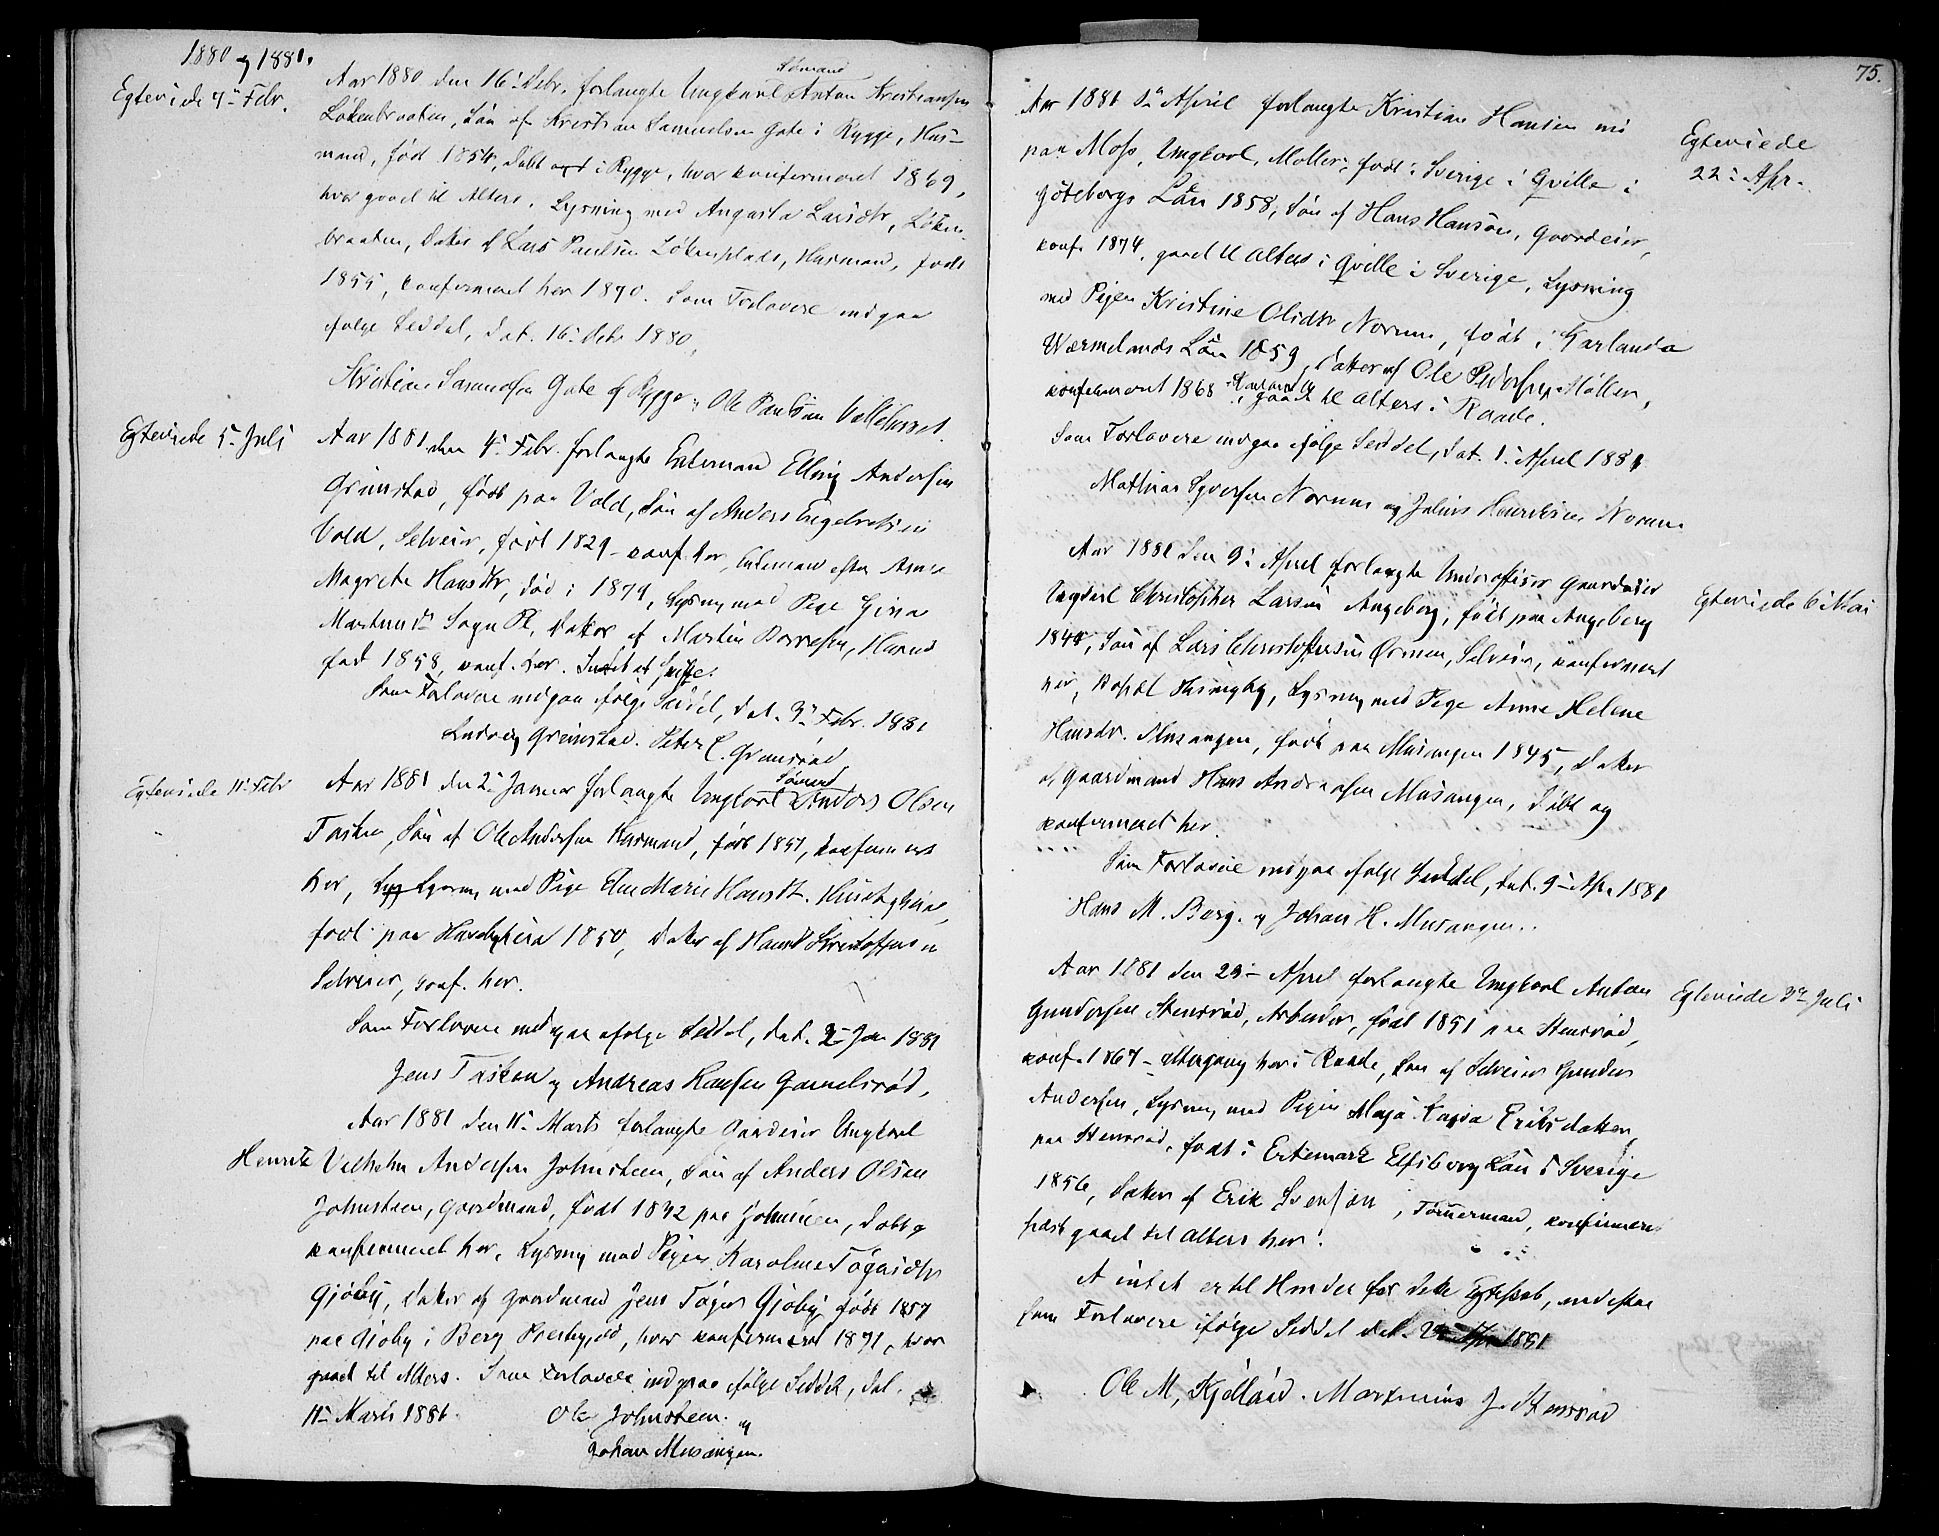 1880 og 1881.
Egteviede 4de Febr.
Aar 1880 den 16de Debr. forlangte Ungkarl Sömand Anton Kristiansen
Lökenbraaten, Sön af Kristian Samuelsen Gate i Rygge, Hus-
mand, född 1854, döbt i Rygge, hvor konfirmeret 1869,
hvor gaaet til Alters. Lysning med Augusta Larsdtr, Löken-
braaten, Datter af Lars Paulsen Lökenplads, Husmand, född
1855, konfirmeret her 1870. Som Forlovere indgaa
ifölge Seddel, dat. 16de Debr 1880,
Kristian Samuelsen Gate af Rygge og Ole Paulsen
Egteviede 5te Juli
Aar 1881 den 4de Febr. forlangte Enkemand Elling Andersen
Grimstad, född paa Vold, Sön af Anders Engebretsen
Vold, Selveier, född 1829 - konf. her, Enkemand efter Anne
Magrete Hansdtr, död i 1879, Lysning med Pige Gina
Martinusdtr Sogn Pl, Datter af Martin Borresen, Husmd
född 1858, konf. her. Intet at Skifte.
Som Forlovere indgaa ifölge Seddel, dat. 3de Febr. 1881
Ludvig Grimstad. Peter C. Grimsrod
Egteviede 11te Febr
Aar 1881 den 2de Januar forlangte Ungkarl Sömand Anders Olsen
Tasken, Sön af Ole Andersen Husmand, född 1857, konfirmeret
her, Lysning med Pige Elen Marie Hansdtr.
född paa 1850, Datter af Hans Kristoffersen
Selveier, konf. her.
Som Forlovere indgaa ifölge Seddel, dat. 2de Jan 1881
Jens Tasken og Andreas Hansen Gamelsröd,
Aar 1881 den 11te Marts forlangte Gaardeier Ungkarl
Henrik Velhelm Andersen Johnsteen, Sön af Anders Olsen
Johnsteen, Gaardmand, född 1842 paa Johnsteen, Döbt og
konfirmeret her, Lysning med Pigen Karoline Tögersdtr
Gjöby, Datter af Gaardmand Jens Töger Gjöby född 1857
paa Gjöby i Berg Prestegjeld, hvor konfirmeret 1871, hvor
gaaet til Alters. Som Forlovere indgaa ifölge Seddel, dat.
11te Marts 1881. Ole Johnsteen. og
Johan Musangen.
75.
Aar 1881 1te April forlangte Kristian Hansen nu
paa Moss, Ungkarl, Möller, född i Sverige i Qville i
Göteborgs Län 1858, Sön af Hans Hansen, Gaardeier,
konf. 1874, gaaet til Alters i Qville i Sverige, Lysning
med Pigen Kristine Olsdtr Norum, född i Karlanda
Wermelands Län 1859, Datter af Ole Pedersen Möller,
konfirmeret 1868 i Karlanda gaaet til Alters i Raade.
Som Forlovere indgaa ifölge Seddel, dat. 1te April 1881
Mathias Syversen Norum og Julius Henriksen Norum
Egteviede
22de Apr.
Aar 1881 den 9de April forlangte Underofficer Gaardeier
Ungkarl Christopher Larsen Augeberg, född paa Augeberg
1844, Sön af Lars Christophersen Ormen, Selveier, konfirmeret
her, Bopæl Huseby, Lysning med Pige Anne Helene
Hansdr. Musangen, född paa Musangen 1845, Datter
af Gaardmand Hans Andreasen Musangen, döbt og
konfirmeret her.
Som Forlovere indgaa ifölge Seddel, dat. 9de Apr. 1881
Hans M. Berg. og Johan H. Musangen.
Egteviede 6te Mai
Aar 1881 den 23de April forlangte Ungkarl Anton
Gundersen Stensröd, Arbeider, född 1851 paa Stensröd,
konf. 1867 - altergang her i Raade, Sön af Selveier Gunder
Andersen, Lysning med Pigen Maja Kajsa Eriksdatter
paa Stensröd, född i Ertemark Elfsborg Län i Sverige
1856, Datter af Erik Svenson, Tömmermand, konfirmeret
sidst gaaet til alters her.
At intet er til Hinder for dette Egteskab, indestaa
som Forlovere ifölge Seddel dat. Apr 1881
Ole M. Kjölröd. Martinius J. Stensröd
Egteviede 3de Juli